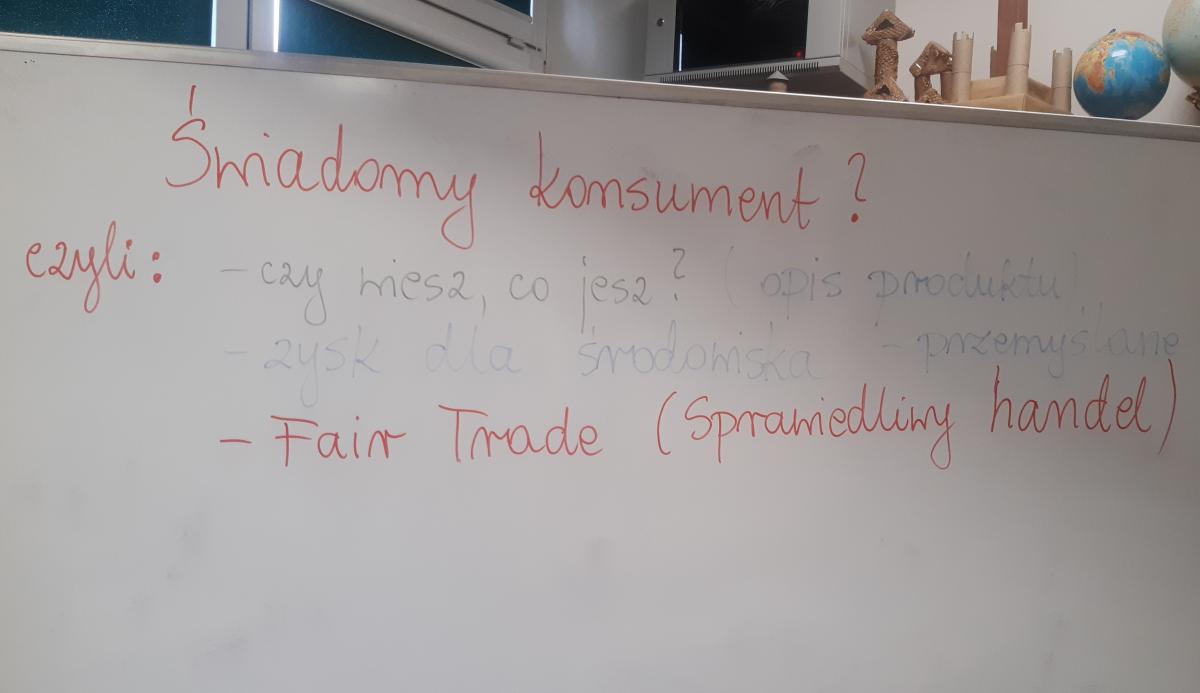 Świadomy konsument?
czyli: - czy wiesz, co jesz? (opis produktu)
- zysk dla środowiska - przemyślane
- Fair Trade (Sprawiedliwy handel)